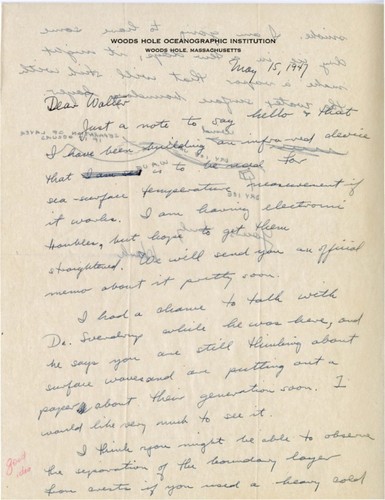 WOODS HOLE OCEANOGRAPHIC INSTITUTION
WOODS HOLE, MASSACHUSETTS
May 15, 1947
Dear Walter
Just a note to say hello & that
I have been building an infrared device
that I am is to be used for
sea-surface temperature measurement if
it works. I am having electronic
troubles, but hope to get them
straightened. We will send you an official
memo about it pretty soon.
I had a chance to talk with
Dr. Sverdrup while he was here, and
he says you are still thinking about
surface waves and are putting out a
paper about their generation soon. I
would like very much to see it.
I think you might be able to observe
the separation of the boundary layer
from crests if you used a heavy cold
good
idea